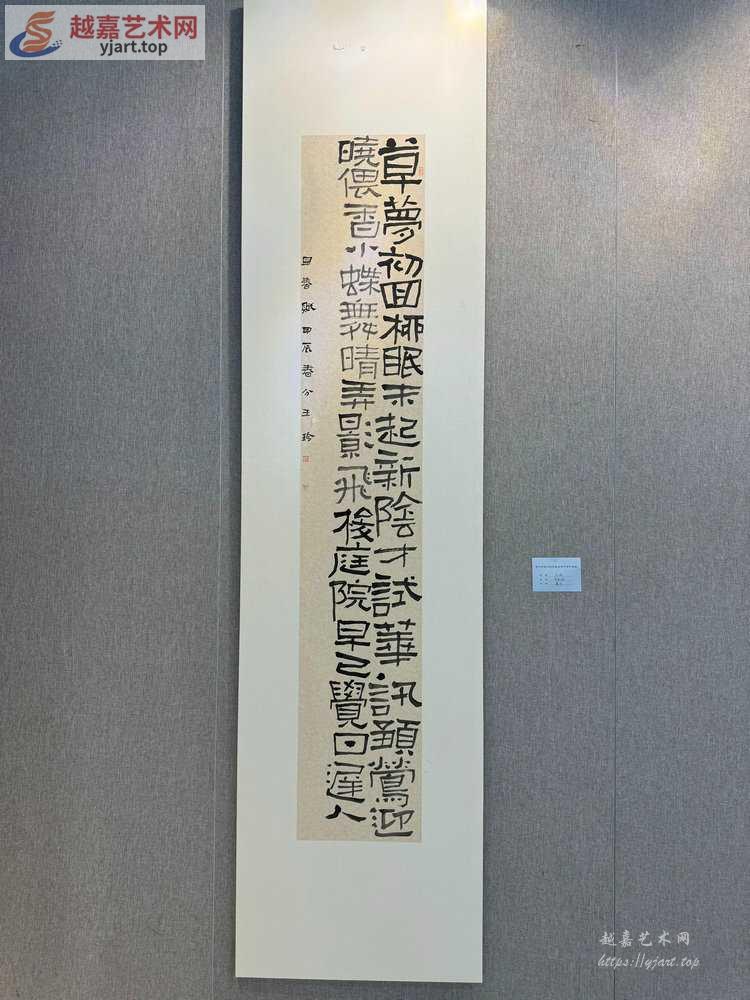 越嘉艺术网
yjart.top
草夢初回栁眠未起新陰才試華訊頻鶯迎
曉偎香小蝶舞晴弄影飛後庭院早已覺日遲人
早春賦甲辰春分王
越嘉艺术网
https://yjart.top